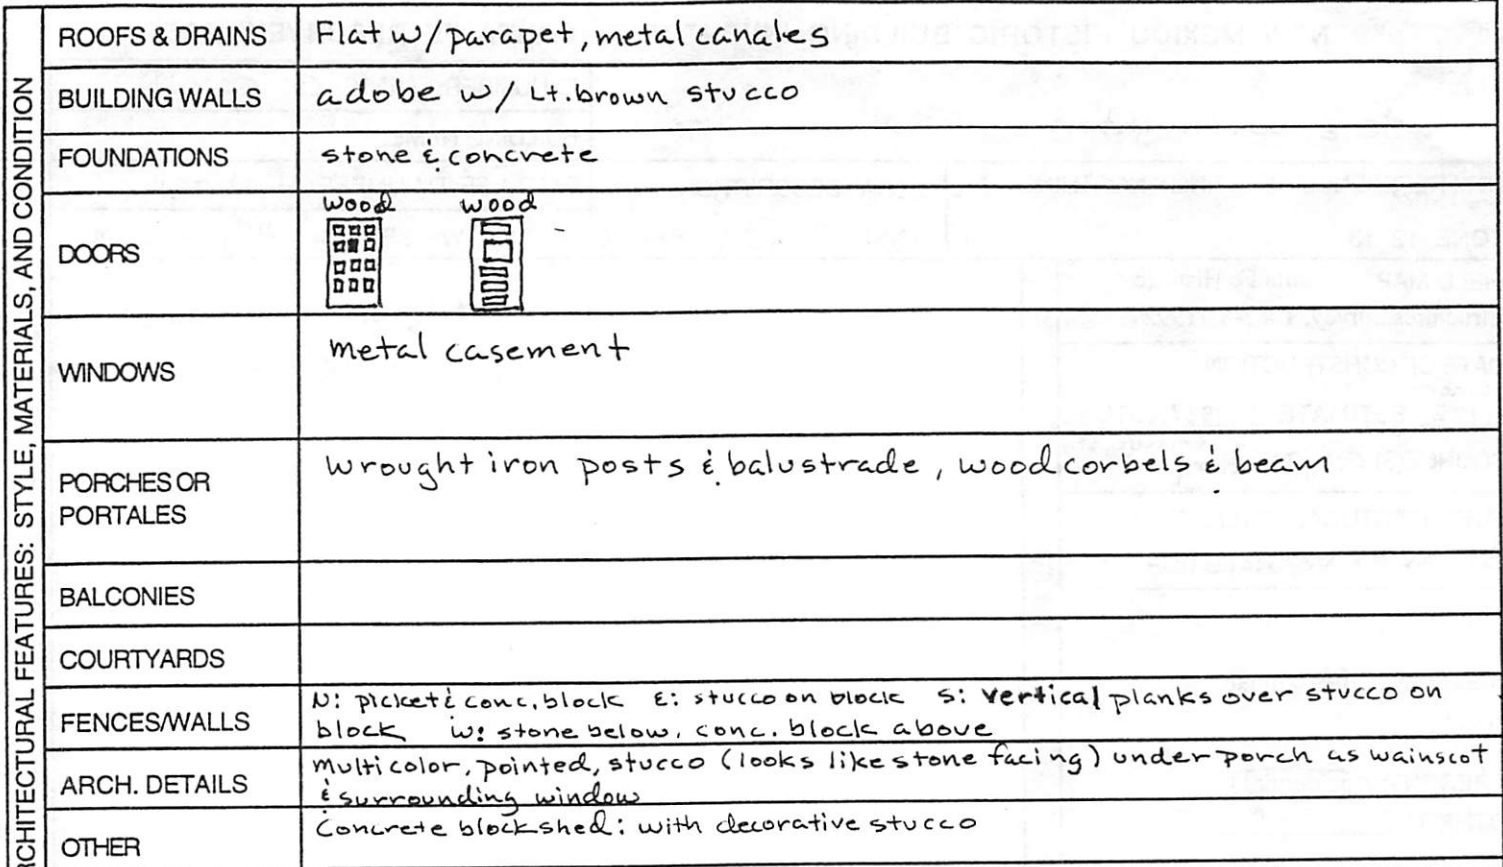 ARCHITECTURAL FEATURES: STYLE, MATERIALS, AND CONDITION
ROOFS & DRAINS Flat w/parapet, metal canales
BUILDING WALLS adobe w/ Lt. brown stucco
FOUNDATIONS stone & concrete
DOORS wood wood
WINDOWS metal casement
PORCHES OR
PORTALES wrought iron posts & balustrade, wood corbels & beam
BALCONIES
COURTYARDS
FENCES/WALLS N: picket & conc. block E: stucco on block S: vertical planks over stucco on
block W: stone below, conc. block above
ARCH. DETAILS multicolor, pointed, stucco (looks like stone facing) under porch as wainscot
& surrounding window
OTHER Concrete block shed: with decorative stucco